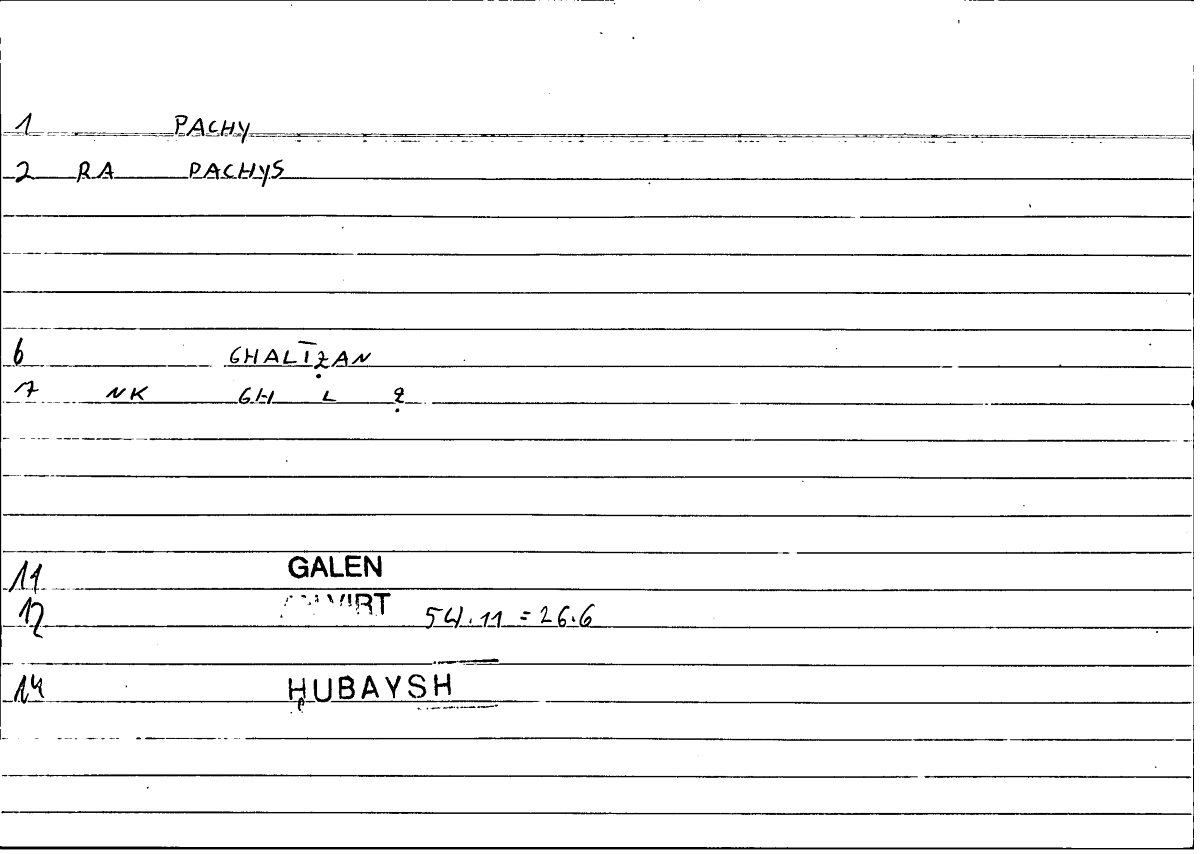 1 PACHY
2 RA PACHYS
6 GHALĪẒAN
7 NK GH L Ẓ
11 GALEN
12 54.11 = 26.6
14 ḤUBAYSH